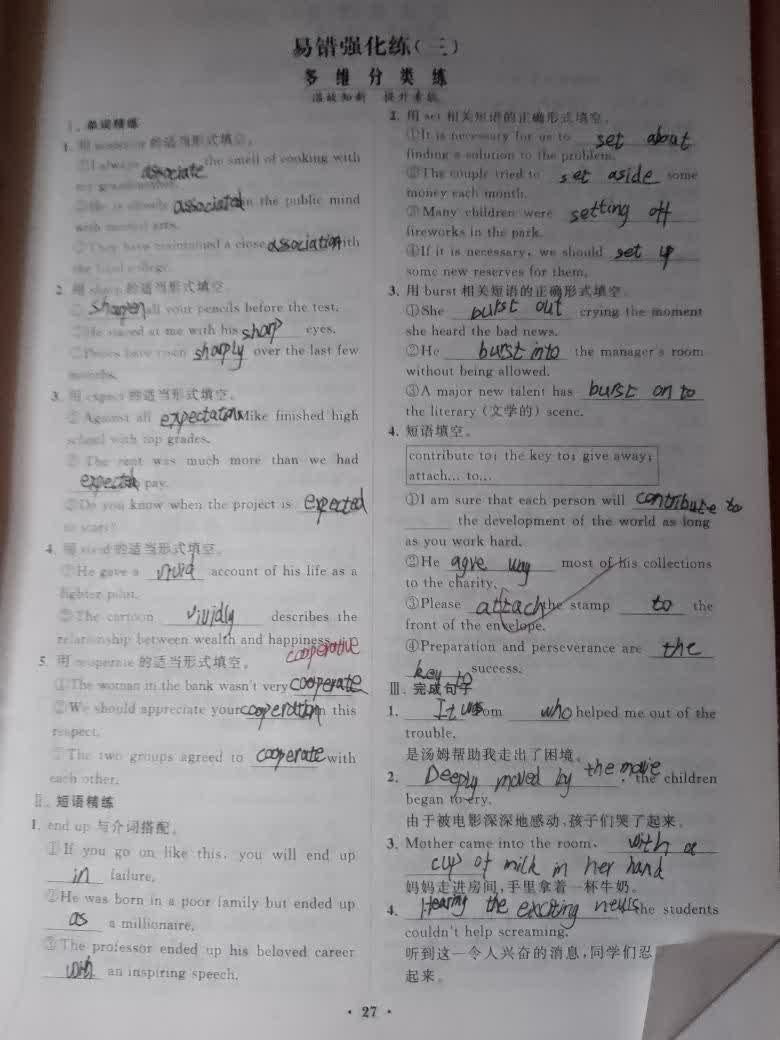 易错强化练(三)
多维分类练
温故知新 提升素能
Ⅰ. 单词精练
1. 用 的适当形式填空。
①I always associate the smell of cooking with
my
②He is closely associated in the public mind
with martial arts.
③They have maintained a close association with
the local college.
2. 用 sharp 的适当形式填空。
① sharpen all your pencils before the test.
②He stared at me with his sharp eyes.
③Prices have risen sharply over the last few
months.
3. 用 expect 的适当形式填空。
① Against all expectations Mike finished high
school with top grades.
② The rent was much more than we had
expected to pay.
③Do you know when the project is expected
to start?
4. 用 vivid 的适当形式填空。
①He gave a vivid account of his life as a
fighter pilot.
②The cartoon vividly describes the
relationship between wealth and happiness.
cooperative
5. 用 cooperate 的适当形式填空。
①The woman in the bank wasn't very cooperate
②We should appreciate your cooperation in this
respect.
③The two groups agreed to cooperate with
each other.
Ⅱ. 短语精练
1. end up 与介词搭配。
①If you go on like this, you will end up
in failure.
②He was born in a poor family but ended up
as a millionaire.
③The professor ended up his beloved career
with an inspiring speech.
2. 用 set 相关短语的正确形式填空。
①It is necessary for us to set about
finding a solution to the problem.
②The couple tried to set aside some
money each month.
③Many children were setting off
fireworks in the park.
④If it is necessary, we should set up
some new reserves for them.
3. 用 burst 相关短语的正确形式填空。
①She burst out crying the moment
she heard the bad news.
②He burst into the manager's room
without being allowed.
③A major new talent has burst on to
the literary (文学的) scene.
4. 短语填空。
contribute to; the key to; give away;
attach... to...
①I am sure that each person will contribute to
the development of the world as long
as you work hard.
②He agve way most of his collections
to the charity.
③Please attach the stamp to the
front of the envelope.
④Preparation and perseverance are the
key to success.
Ⅲ. 完成句子
1. It was Tom who helped me out of the
trouble.
是汤姆帮助我走出了困境。
2. Deeply moved by the movie, the children
began to cry.
由于被电影深深地感动,孩子们哭了起来。
3. Mother came into the room, with a
cup of milk in her hand
妈妈走进房间,手里拿着一杯牛奶。
4. Hearing the exciting news the students
couldn't help screaming.
听到这一令人兴奋的消息,同学们忍
起来。
· 27 ·